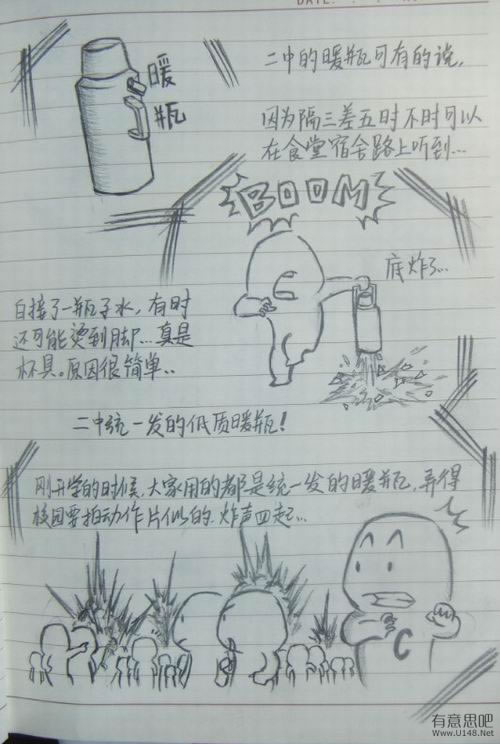 DATE:
暖
瓶
二中的暖瓶可有的说,
因为隔三差五时不时可以
在食堂宿舍路上听到...
BOOM
底炸了...
白接了一瓶子水, 有时
还可能烫到脚...真是
杯具。原因很简单..
二中统一发的低质暖瓶!
刚开学的时候, 大家用的都是统一发的暖瓶, 弄得
校园要拍动作片似的. 炸声四起...
C
C
有意思吧
Www.U148.Net